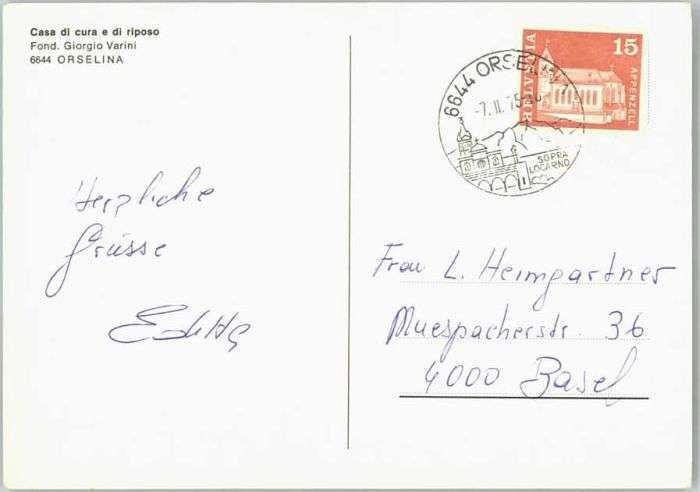 Casa di cura e di riposo
Fond. Giorgio Varini
6644 ORSELINA
15
HELVETIA
APPENZELL
6644 ORSELINA 1
-7.II.75-
SOPRA
LOCARNO
Herzliche
Grüsse
Frau L. Heimgartner
Muespacherstr. 36
4000 Basel